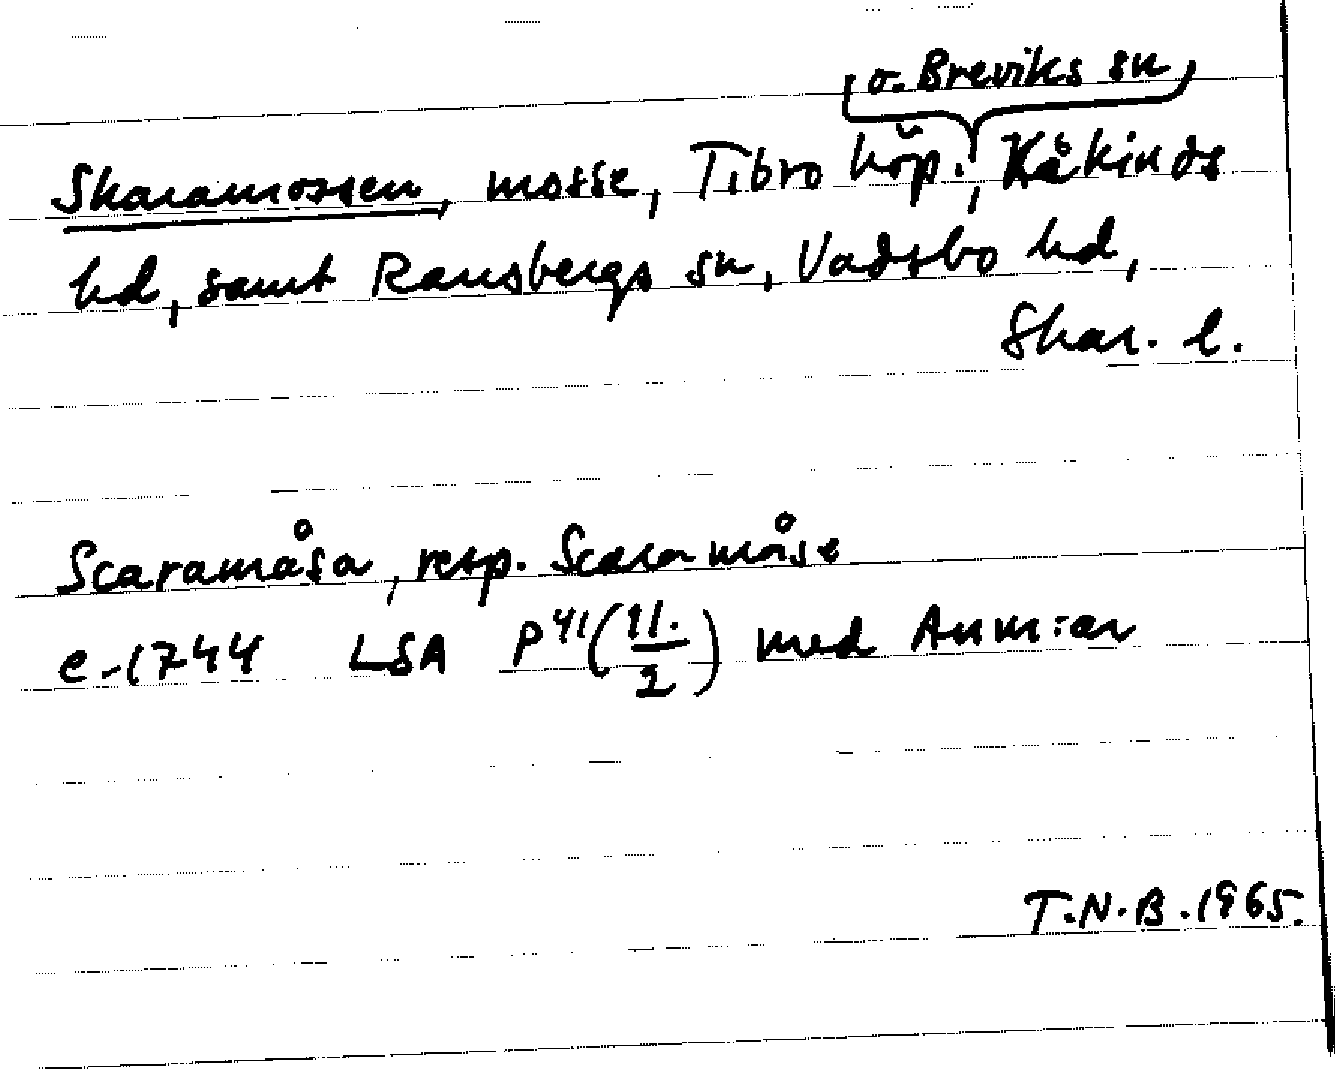 o. Breviks sn
Skaramossen, mosse, Tibro köp., Kåkinds
hd, samt Ransbergs sn, Vadsbo hd,
Skar. l.
Scaramåsa, resp. Scaramåse
c-1744 LSA P41(11./2) med Anm:ar
T.N.B. 1965.